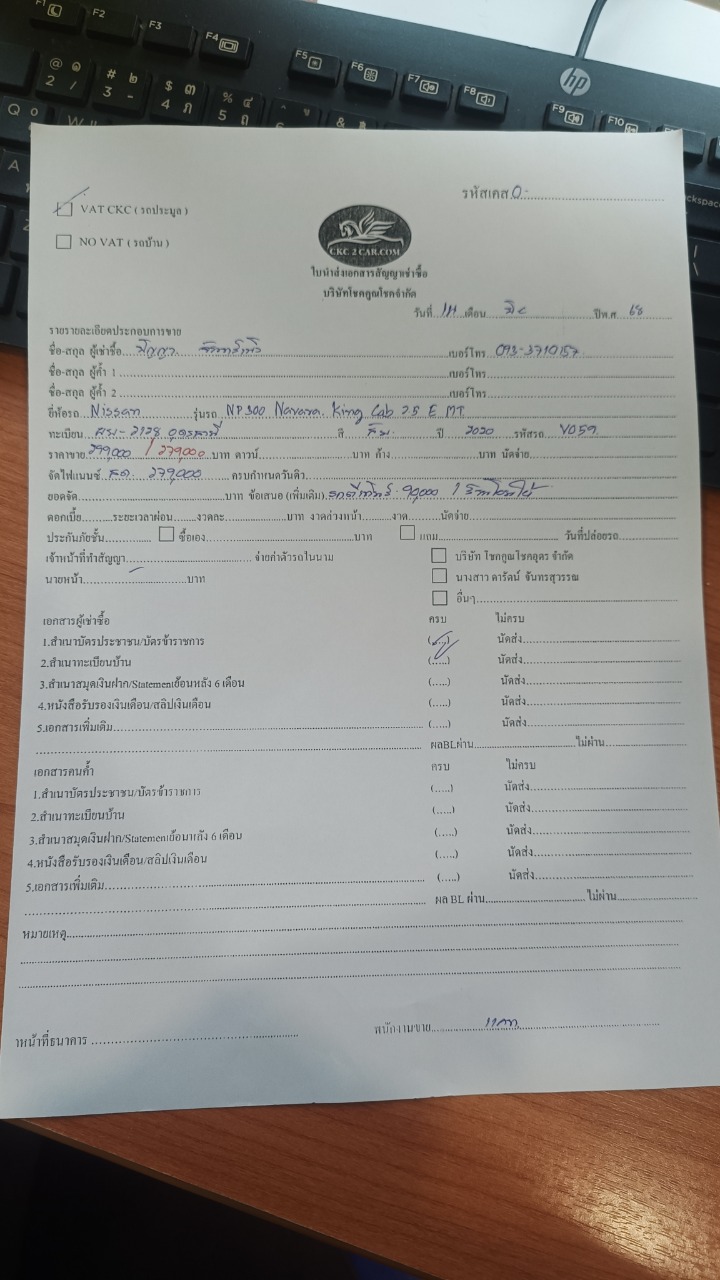 F1 F2 F3 F4 F5 F6 F7 F8 F9 F10
hp
รหัสเคส 0-
VAT CKC ( รถประมูล )
NO VAT ( รถบ้าน )
CKC 2 CAR.COM
ใบนำส่งเอกสารสัญญาเช่าซื้อ
บริษัทโชคคูณโชคจำกัด
วันที่ เดือน ปีพ.ศ. 68
รายรายละเอียดประกอบการขาย
ชื่อ-สกุล ผู้เช่าซื้อ เบอร์โทร 093-3710157
ชื่อ-สกุล ผู้ค้ำ 1 เบอร์โทร
ชื่อ-สกุล ผู้ค้ำ 2 เบอร์โทร
ยี่ห้อรถ Nissan รุ่นรถ NP300 Navara King Cab 2.5 E MT
ทะเบียน 2128 อุดรธานี สี ส้ม ปี 2020 รหัสรถ V059
ราคาขาย 299,000 / 279,000 บาท ดาวน์ บาท ค้าง บาท นัดจ่าย
จัดไฟแนนซ์ สด 279,000 ครบกำหนดวันคิว
ยอดจัด บาท ข้อเสนอ (เพิ่มเติม)
ดอกเบี้ย ระยะเวลาผ่อน งวดละ บาท งวดล่วงหน้า งวด นัดจ่าย
ประกันภัยชั้น ซื้อเอง บาท แถม วันที่ปล่อยรถ
เจ้าหน้าที่ทำสัญญา จ่ายค่าตัวรถในนาม บริษัท โชคคูณโชคอุดร จำกัด
นายหน้า บาท นางสาว ดารัตน์ จันทรสุวรรณ
อื่นๆ
เอกสารผู้เช่าซื้อ ครบ ไม่ครบ
1.สำเนาบัตรประชาชน/บัตรข้าราชการ (.....) นัดส่ง
2.สำเนาทะเบียนบ้าน (.....) นัดส่ง
3.สำเนาสมุดเงินฝาก/Statementย้อนหลัง 6 เดือน (.....) นัดส่ง
4.หนังสือรับรองเงินเดือน/สลิปเงินเดือน (.....) นัดส่ง
5.เอกสารเพิ่มเติม (.....) นัดส่ง
ผลBLผ่าน ไม่ผ่าน
เอกสารคนค้ำ ครบ ไม่ครบ
1.สำเนาบัตรประชาชน/บัตรข้าราชการ (.....) นัดส่ง
2.สำเนาทะเบียนบ้าน (.....) นัดส่ง
3.สำเนาสมุดเงินฝาก/Statementย้อนหลัง 6 เดือน (.....) นัดส่ง
4.หนังสือรับรองเงินเดือน/สลิปเงินเดือน (.....) นัดส่ง
5.เอกสารเพิ่มเติม (.....) นัดส่ง
ผล BL ผ่าน ไม่ผ่าน
หมายเหตุ
าหน้าที่ธนาคาร พนักงานขาย